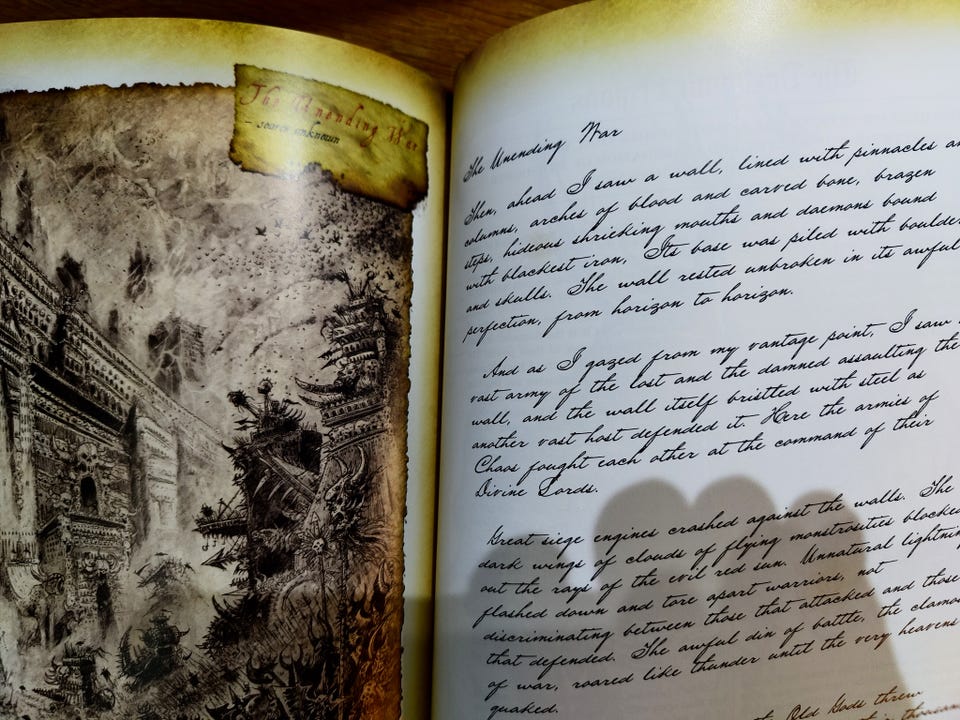 The Unending War
- source unknown
The Unending War
Then, ahead I saw a wall, lined with pinnacles
columns, arches of blood and carved bone, brazen
steps, hideous shrieking mouths and daemons bound
with blackest iron, Its base was piled with
and skulls. The wall rested unbroken in its awful
perfection, from horizon to horizon.
And as I gazed from my vantage point, I saw
vast army of the lost and the damned assaulting the
wall, and the wall itself bristled with steel as
another vast host defended it. Here the armies of
Chaos fought each other at the command of their
Divine Lords.
Great siege engines crashed against the walls. The
dark wings of clouds of flying monstrosities blocked
out the rays of the evil red sun. Unnatural
flashed down and tore apart warriors, not
discriminating between those that attacked and those
that defended. The awful din of battle, the
of war, roared like thunder until the very heavens
quaked.
Old Gods threw